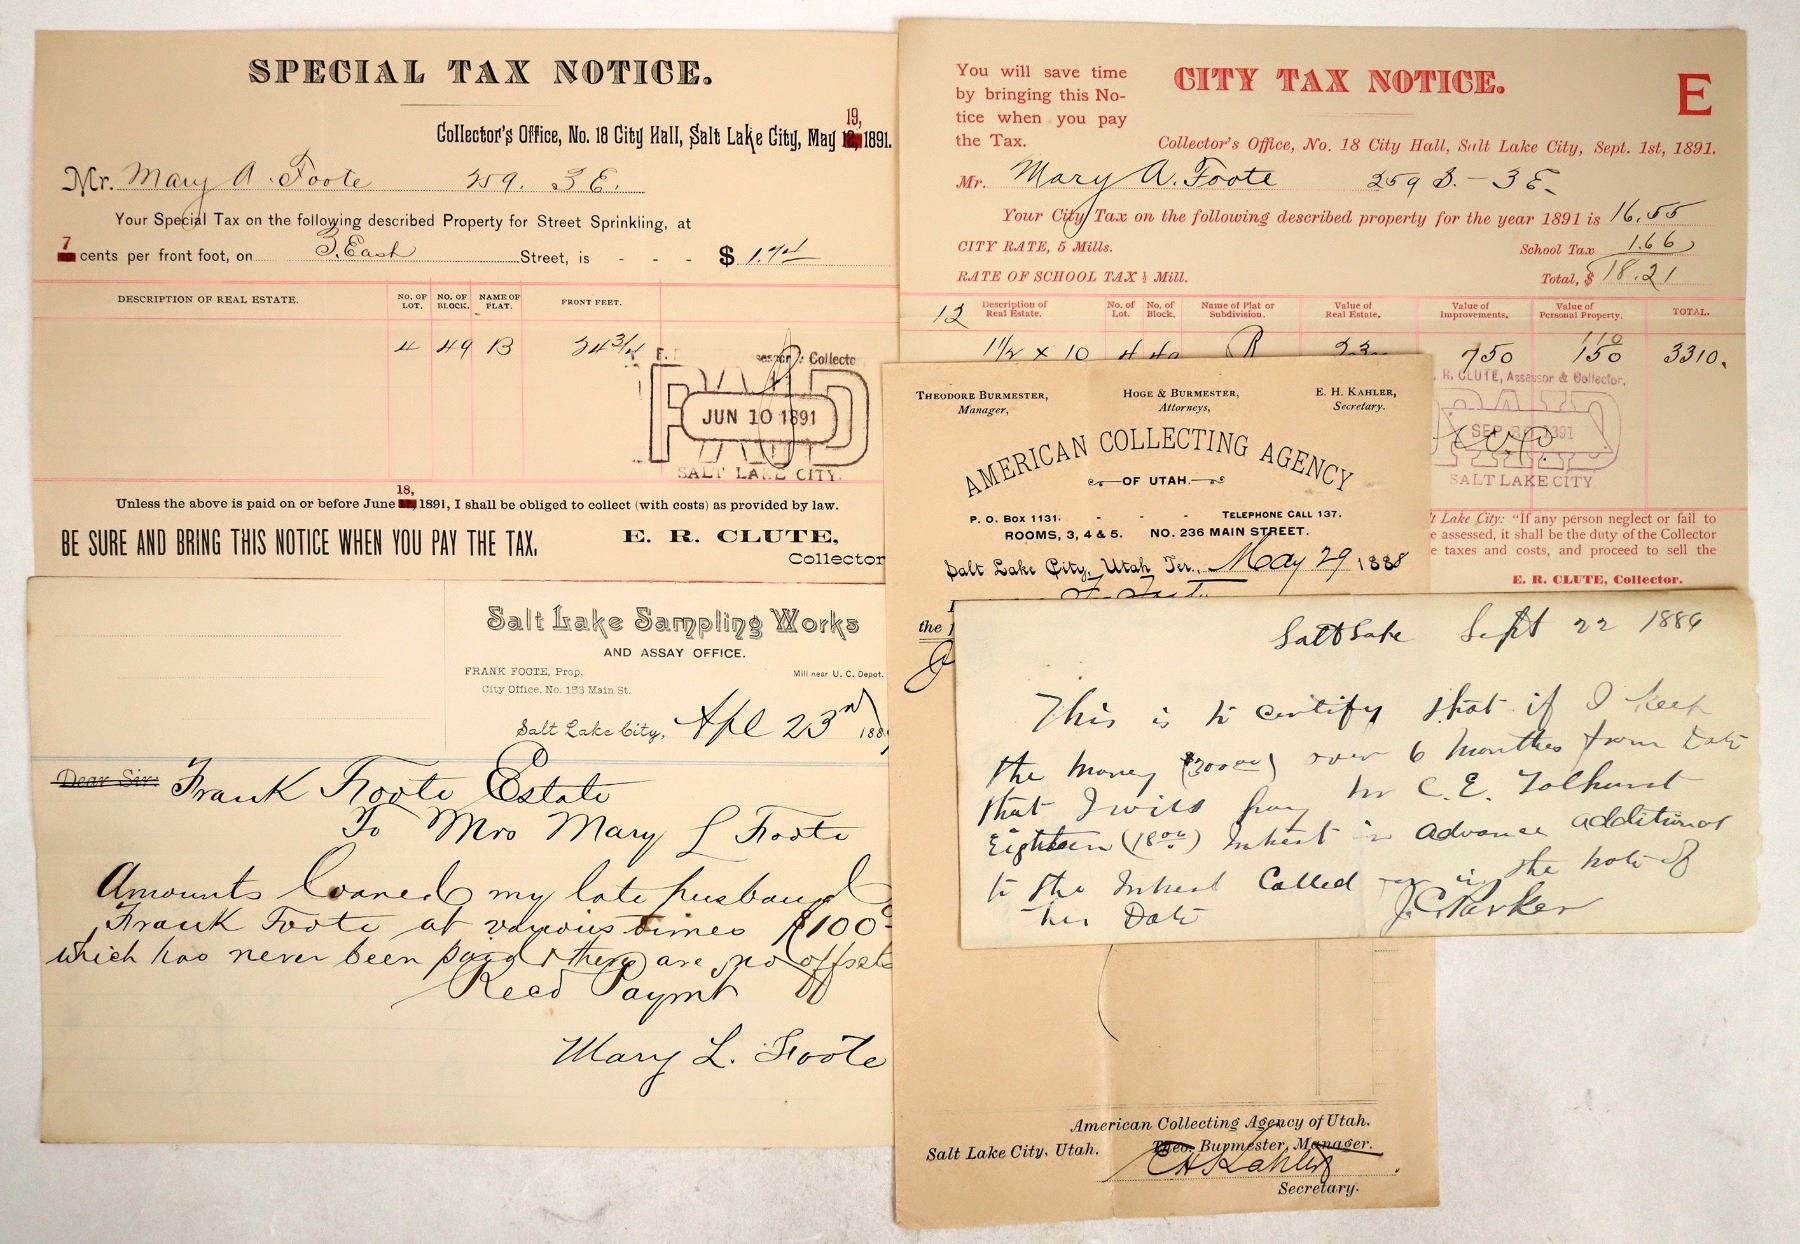 SPECIAL TAX NOTICE.
19,
Collector's Office, No. 18 City Hall, Salt Lake City, May 12, 1891.
Mr. Mary A. Foote 259. 3 E.
Your Special Tax on the following described Property for Street Sprinkling, at
7
cents per front foot, on 3. East Street, is - - - $ 1.74
DESCRIPTION OF REAL ESTATE. NO. OF LOT. NO. OF BLOCK. NAME OF PLAT. FRONT FEET.
4 49 B 24 3/4
Collector
PAID
JUN 10 1891
SALT LAKE CITY.
18,
Unless the above is paid on or before June 1891, I shall be obliged to collect (with costs) as provided by law.
BE SURE AND BRING THIS NOTICE WHEN YOU PAY THE TAX. E. R. CLUTE,
Collector
You will save time
by bringing this No-
tice when you pay
the Tax.
CITY TAX NOTICE. E
Collector's Office, No. 18 City Hall, Salt Lake City, Sept. 1st, 1891.
Mr. Mary A. Foote 259 S. - 3 E.
Your City Tax on the following described property for the year 1891 is 16.55
CITY RATE, 5 Mills. School Tax 1.66
RATE OF SCHOOL TAX ½ Mill. Total, $ 18.21
12 Description of Real Estate. No. of Lot. No. of Block. Name of Plat or Subdivision. Value of Real Estate. Value of Improvements. Value of Personal Property. TOTAL.
110
1½ x 10 4 49 B 750 150 3310.
R. CLUTE, Assessor & Collector.
PAID
SEP 30 1891
SALT LAKE CITY
't Lake City: "If any person neglect or fail to
e assessed, it shall be the duty of the Collector
e taxes and costs, and proceed to sell the
E. R. CLUTE, Collector.
THEODORE BURMESTER, HOGE & BURMESTER, E. H. KAHLER,
Manager, Attorneys, Secretary.
AMERICAN COLLECTING AGENCY
OF UTAH.
P. O. Box 1131. - - - TELEPHONE CALL 137.
ROOMS, 3, 4 & 5. NO. 236 MAIN STREET.
Salt Lake City, Utah Ter., May 29 1888
the
American Collecting Agency of Utah.
Salt Lake City, Utah. Theo. Burmester, Manager.
E H Kahler
Secretary.
Salt Lake Sampling Works
AND ASSAY OFFICE.
FRANK FOOTE, Prop. Mill near U. C. Depot.
City Office, No. 153 Main St.
Salt Lake City, Apl 23rd 188
Dear Sir: Frank Foote Estate
To Mrs Mary L Foote
Amounts loaned my late husband
Frank Foote at various times $100
which has never been paid & there are no offsets
Recd Paymt
Mary L. Foote
Salt Lake Sept 22 1886
This is to certify that if I keep
the money ($300.00) over 6 months from Date
that I will pay Mr C. E. Tolhurst
Eighteen (18.00) Interest in advance additional
to the Interest Called for in the note of
this Date J. C. Parker